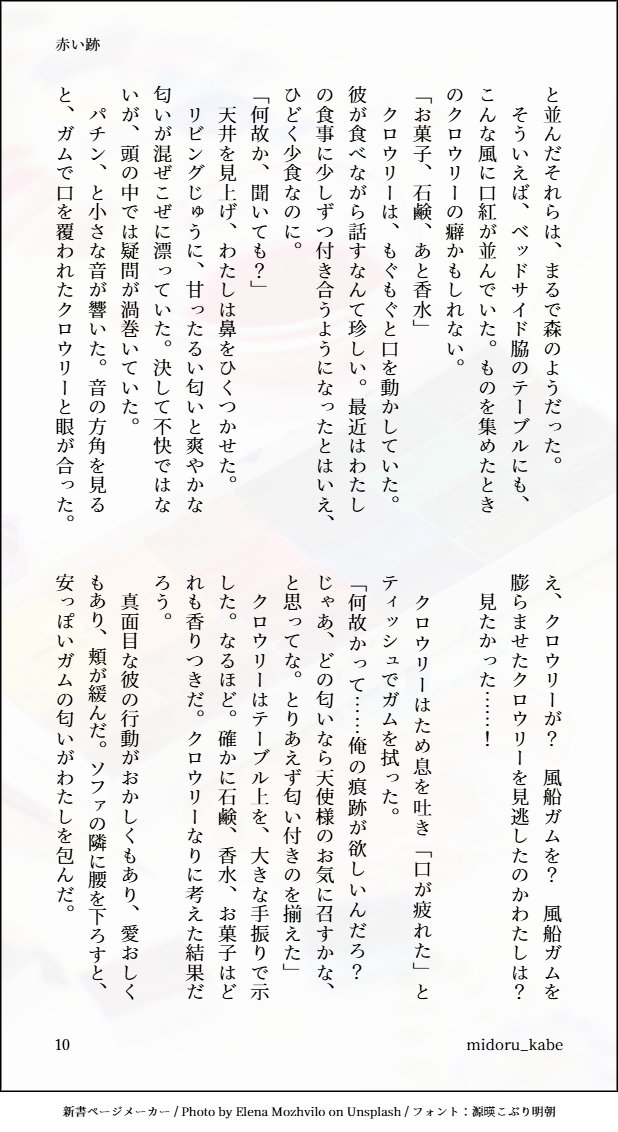 赤い跡
と並んだそれらは、まるで森のようだった。
　そういえば、ベッドサイド脇のテーブルにも、
こんな風に口紅が並んでいた。ものを集めたとき
のクロウリーの癖かもしれない。
「お菓子、石鹸、あと香水」
　クロウリーは、もぐもぐと口を動かしていた。
彼が食べながら話すなんて珍しい。最近はわたし
の食事に少しずつ付き合うようになったとはいえ、
ひどく少食なのに。
「何故か、聞いても？」
　天井を見上げ、わたしは鼻をひくつかせた。
　リビングじゅうに、甘ったるい匂いと爽やかな
匂いが混ぜこぜに漂っていた。決して不快ではな
いが、頭の中では疑問が渦巻いていた。
　パチン、と小さな音が響いた。音の方角を見る
と、ガムで口を覆われたクロウリーと眼が合った。
え、クロウリーが？　風船ガムを？　風船ガムを
膨らませたクロウリーを見逃したのかわたしは？
　見たかった……！
　クロウリーはため息を吐き「口が疲れた」と
ティッシュでガムを拭った。
「何故かって……俺の痕跡が欲しいんだろ？
じゃあ、どの匂いなら天使様のお気に召すかな、
と思ってな。とりあえず匂い付きのを揃えた」
　クロウリーはテーブル上を、大きな手振りで示
した。なるほど。確かに石鹸、香水、お菓子はど
れも香りつきだ。クロウリーなりに考えた結果だ
ろう。
　真面目な彼の行動がおかしくもあり、愛おしく
もあり、頬が緩んだ。ソファの隣に腰を下ろすと、
安っぽいガムの匂いがわたしを包んだ。
10
midoru_kabe
新書ページメーカー / Photo by Elena Mozhvilo on Unsplash / フォント：源暎こぶり明朝